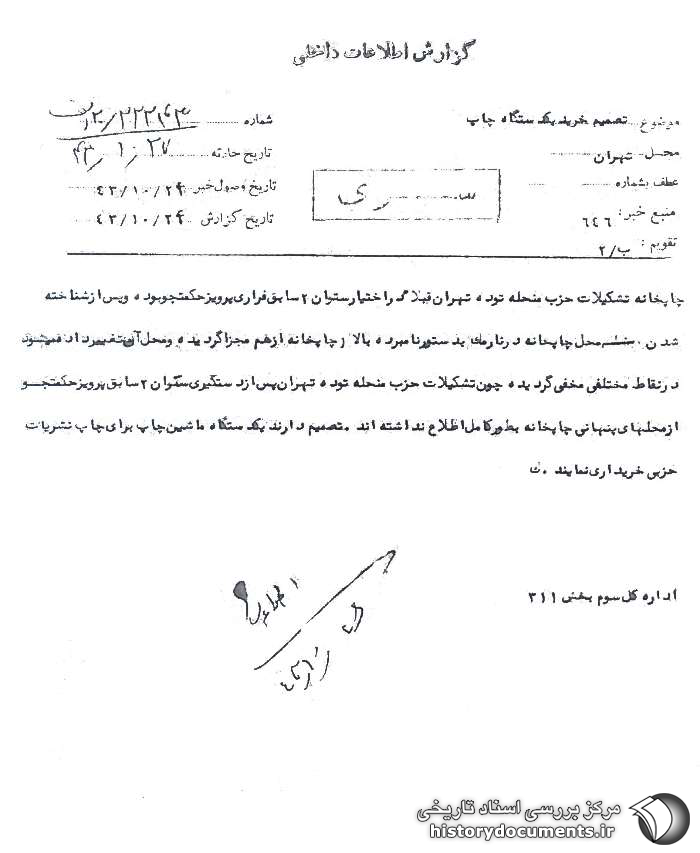 گزارش اطلاعات داخلی
موضوع تصمیم خرید یکدستگاه چاپ
شماره
محل تهران
تاریخ حادثه
عطف بشماره
تاریخ وصول خبر ۴۳/۱۰/۲۴
منبع خبر: ۶۴۶
تاریخ گزارش ۴۳/۱۰/۲۴
تقویم: ب/۲
سری
چاپخانه تشکیلات حزب منحله توده تهران قبلا در اختیار ستوان ۲ سابق فراری پرویز حکمتجو بوده و پس از شناخته
شدن محل چاپخانه در نارمک بدستور نامبرده بالا از چاپخانه از هم مجزا گردیده و محل آن تغییر داده میشود
در نقاط مختلفی مخفی گردیده چون تشکیلات حزب منحله توده تهران پس از دستگیری ستوان ۲ سابق پرویز حکمتجو
از محلهای پنهانی چاپخانه بطور کامل اطلاع نداشته اند . تصمیم دارند یکدستگاه ماشین چاپ برای چاپ نشریات
حزبی خریداری نمایند .
اداره کل سوم بخش ۳۱۱
مرکز بررسی اسناد تاریخی
historydocuments.ir